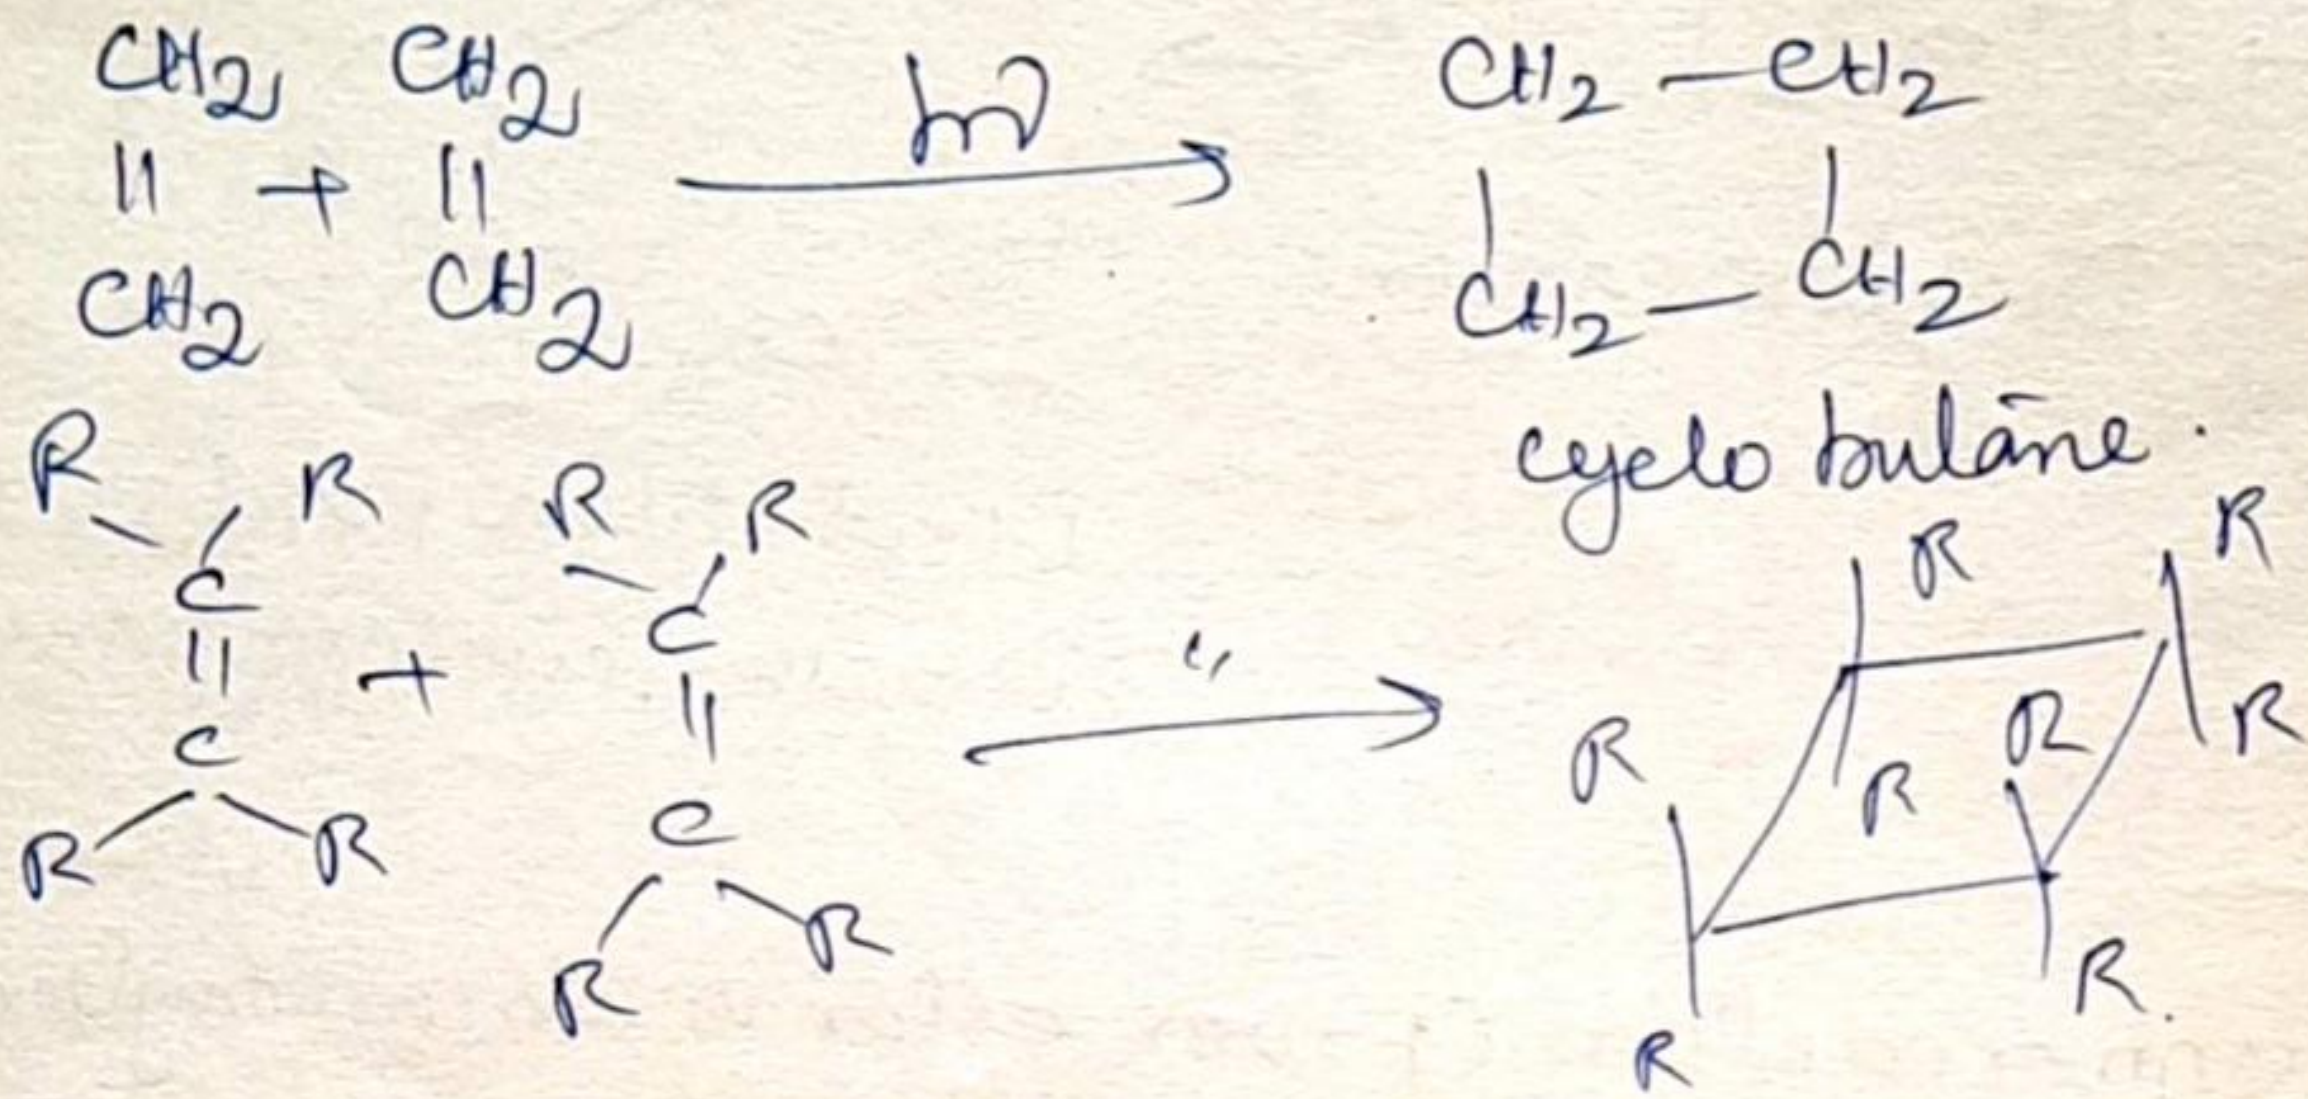 CH2 CH2 hν CH2 — CH2
|| + || ⟶ | |
CH2 CH2 CH2 — CH2
cyclo butane.
R R R R R R
C C
|| + || " ⟶ R R R R
C C
R R R R R R.